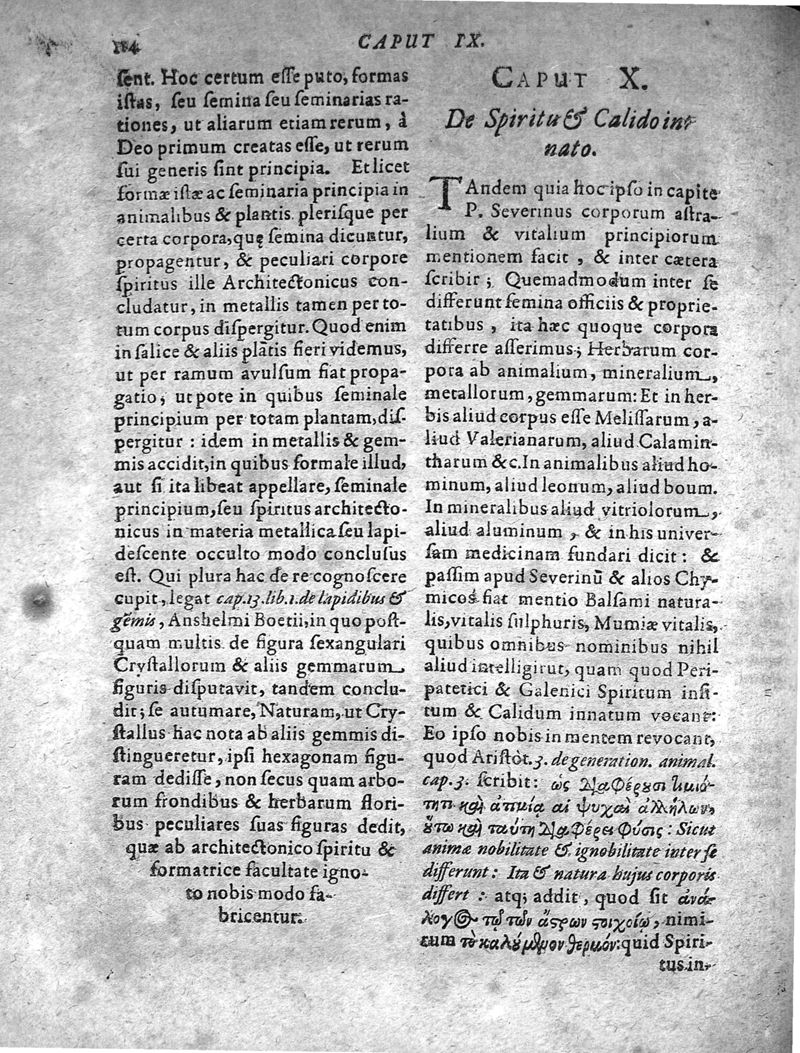 184
CAPUT IX.
ſent. Hoc certum eſſe puto, formas
iſtas, ſeu ſemina ſeu ſeminarias ra-
tiones, ut aliarum etiam rerum, à
Deo primum creatas eſſe, ut rerum
ſui generis ſint principia. Et licet
formæ iſtæ ac ſeminaria principia in
animalibus & plantis pleriſque per
certa corpora, quę ſemina dicuntur,
propagentur, & peculiari corpore
ſpiritus ille Architectonicus con-
cludatur, in metallis tamen per to-
tum corpus diſpergitur. Quod enim
in ſalice & aliis plãtis fieri videmus,
ut per ramum avulſum fiat propa-
gatio; utpote in quibus ſeminale
principium per totam plantam, diſ-
pergitur : idem in metallis & gem-
mis accidit, in quibus formale illud,
aut ſi ita libeat appellare, ſeminale
principium, ſeu ſpiritus architecto-
nicus in materia metallica ſeu lapi-
deſcente occulto modo concluſus
eſt. Qui plura hac de re cognoſcere
cupit, legat cap. 13. lib. 1. de lapidibus &
gẽmis, Anshelmi Boetii, in quo poſt-
quam multis de figura ſexangulari
Cryſtallorum & aliis gemmarum
figuris diſputavit, tandem conclu-
dit; ſe autumare, Naturam, ut Cry-
ſtallus hac nota ab aliis gemmis di-
ſtingueretur, ipſi hexagonam figu-
ram dediſſe, non ſecus quam arbo-
rum frondibus & herbarum flori-
bus peculiares ſuas figuras dedit,
quæ ab architectonico ſpiritu &
formatrice facultate igno-
to nobis modo fa-
bricentur.
CAPUT X.
De Spiritu & Calido in-
nato.
TAndem quia hoc ipſo in capite
P. Severinus corporum aſtra-
lium & vitalium principiorum
mentionem facit, & inter cætera
ſcribit ; Quemadmodum inter ſe
differunt ſemina officiis & proprie-
tatibus, ita hæc quoque corpora
differre aſſerimus; Herbarum cor-
pora ab animalium, mineralium,
metallorum, gemmarum: Et in her-
bis aliud corpus eſſe Meliſſarum, a-
liud Valerianarum, aliud Calamin-
tharum &c. In animalibus aliud ho-
minum, aliud leonum, aliud boum.
In mineralibus aliud vitriolorum,
aliud aluminum, & in his univer-
ſam medicinam fundari dicit: &
paſſim apud Severinũ & alios Chy-
micos fiat mentio Balſami natura-
lis, vitalis ſulphuris, Mumiæ vitalis,
quibus omnibus nominibus nihil
aliud intelligitur, quam quod Peri-
patetici & Galenici Spiritum inſi-
tum & Calidum innatum vocant:
Eo ipſo nobis in mentem revocant,
quod Ariſtot. 3. de generation. animal.
cap. 3. ſcribit: ὡς διαφέρουσι τιμιό-
τητι καὶ ἀτιμία αἱ ψυχαὶ ἀλλήλων,
οὕτω καὶ ταύτη διαφέρει φύσις : Sicut
animæ nobilitate & ignobilitate inter ſe
differunt: Ita & natura hujus corporis
differt : atq; addit, quod ſit ἀνά-
λογος τῷ τῶν ἄστρων στοιχείῳ, nimi-
rum τὸ καλούμενον θερμόν: quid Spiri-
tus in-